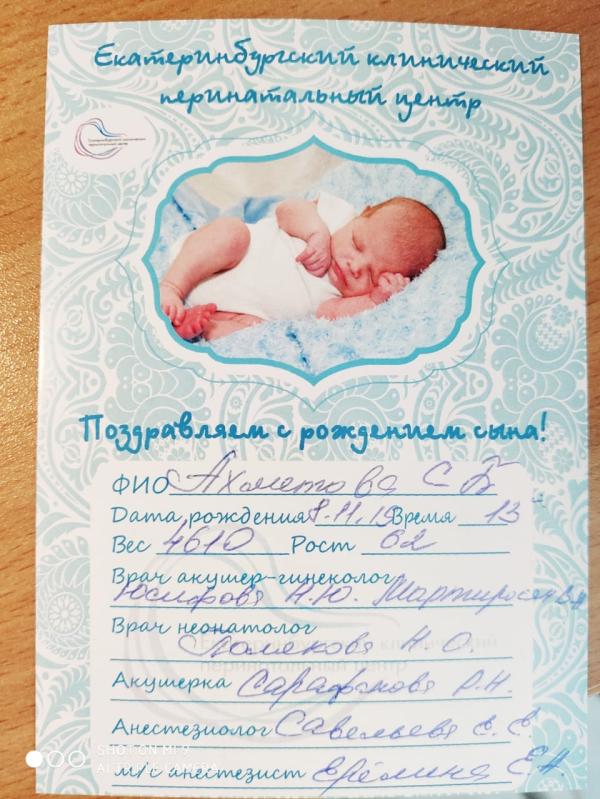 Екатеринбургский клинический
перинатальный центр
Екатеринбургский клинический
перинатальный центр
Поздравляем с рождением сына!
ФИО Ахметова С
Дата рождения 8.11.19 Время 13
Вес 4610 Рост 62
Врач акушер-гинеколог
Юсифова Н.Ю. Мартиросян
Врач неонатолог
Полякова Н.О.
Акушерка Сарафанова Р.Н.
Анестезиолог Савельева Е. В.
м/с анестезист Ерёмина Е.Н.
SHOT ON MI 9
AI TRIPLE CAMERA